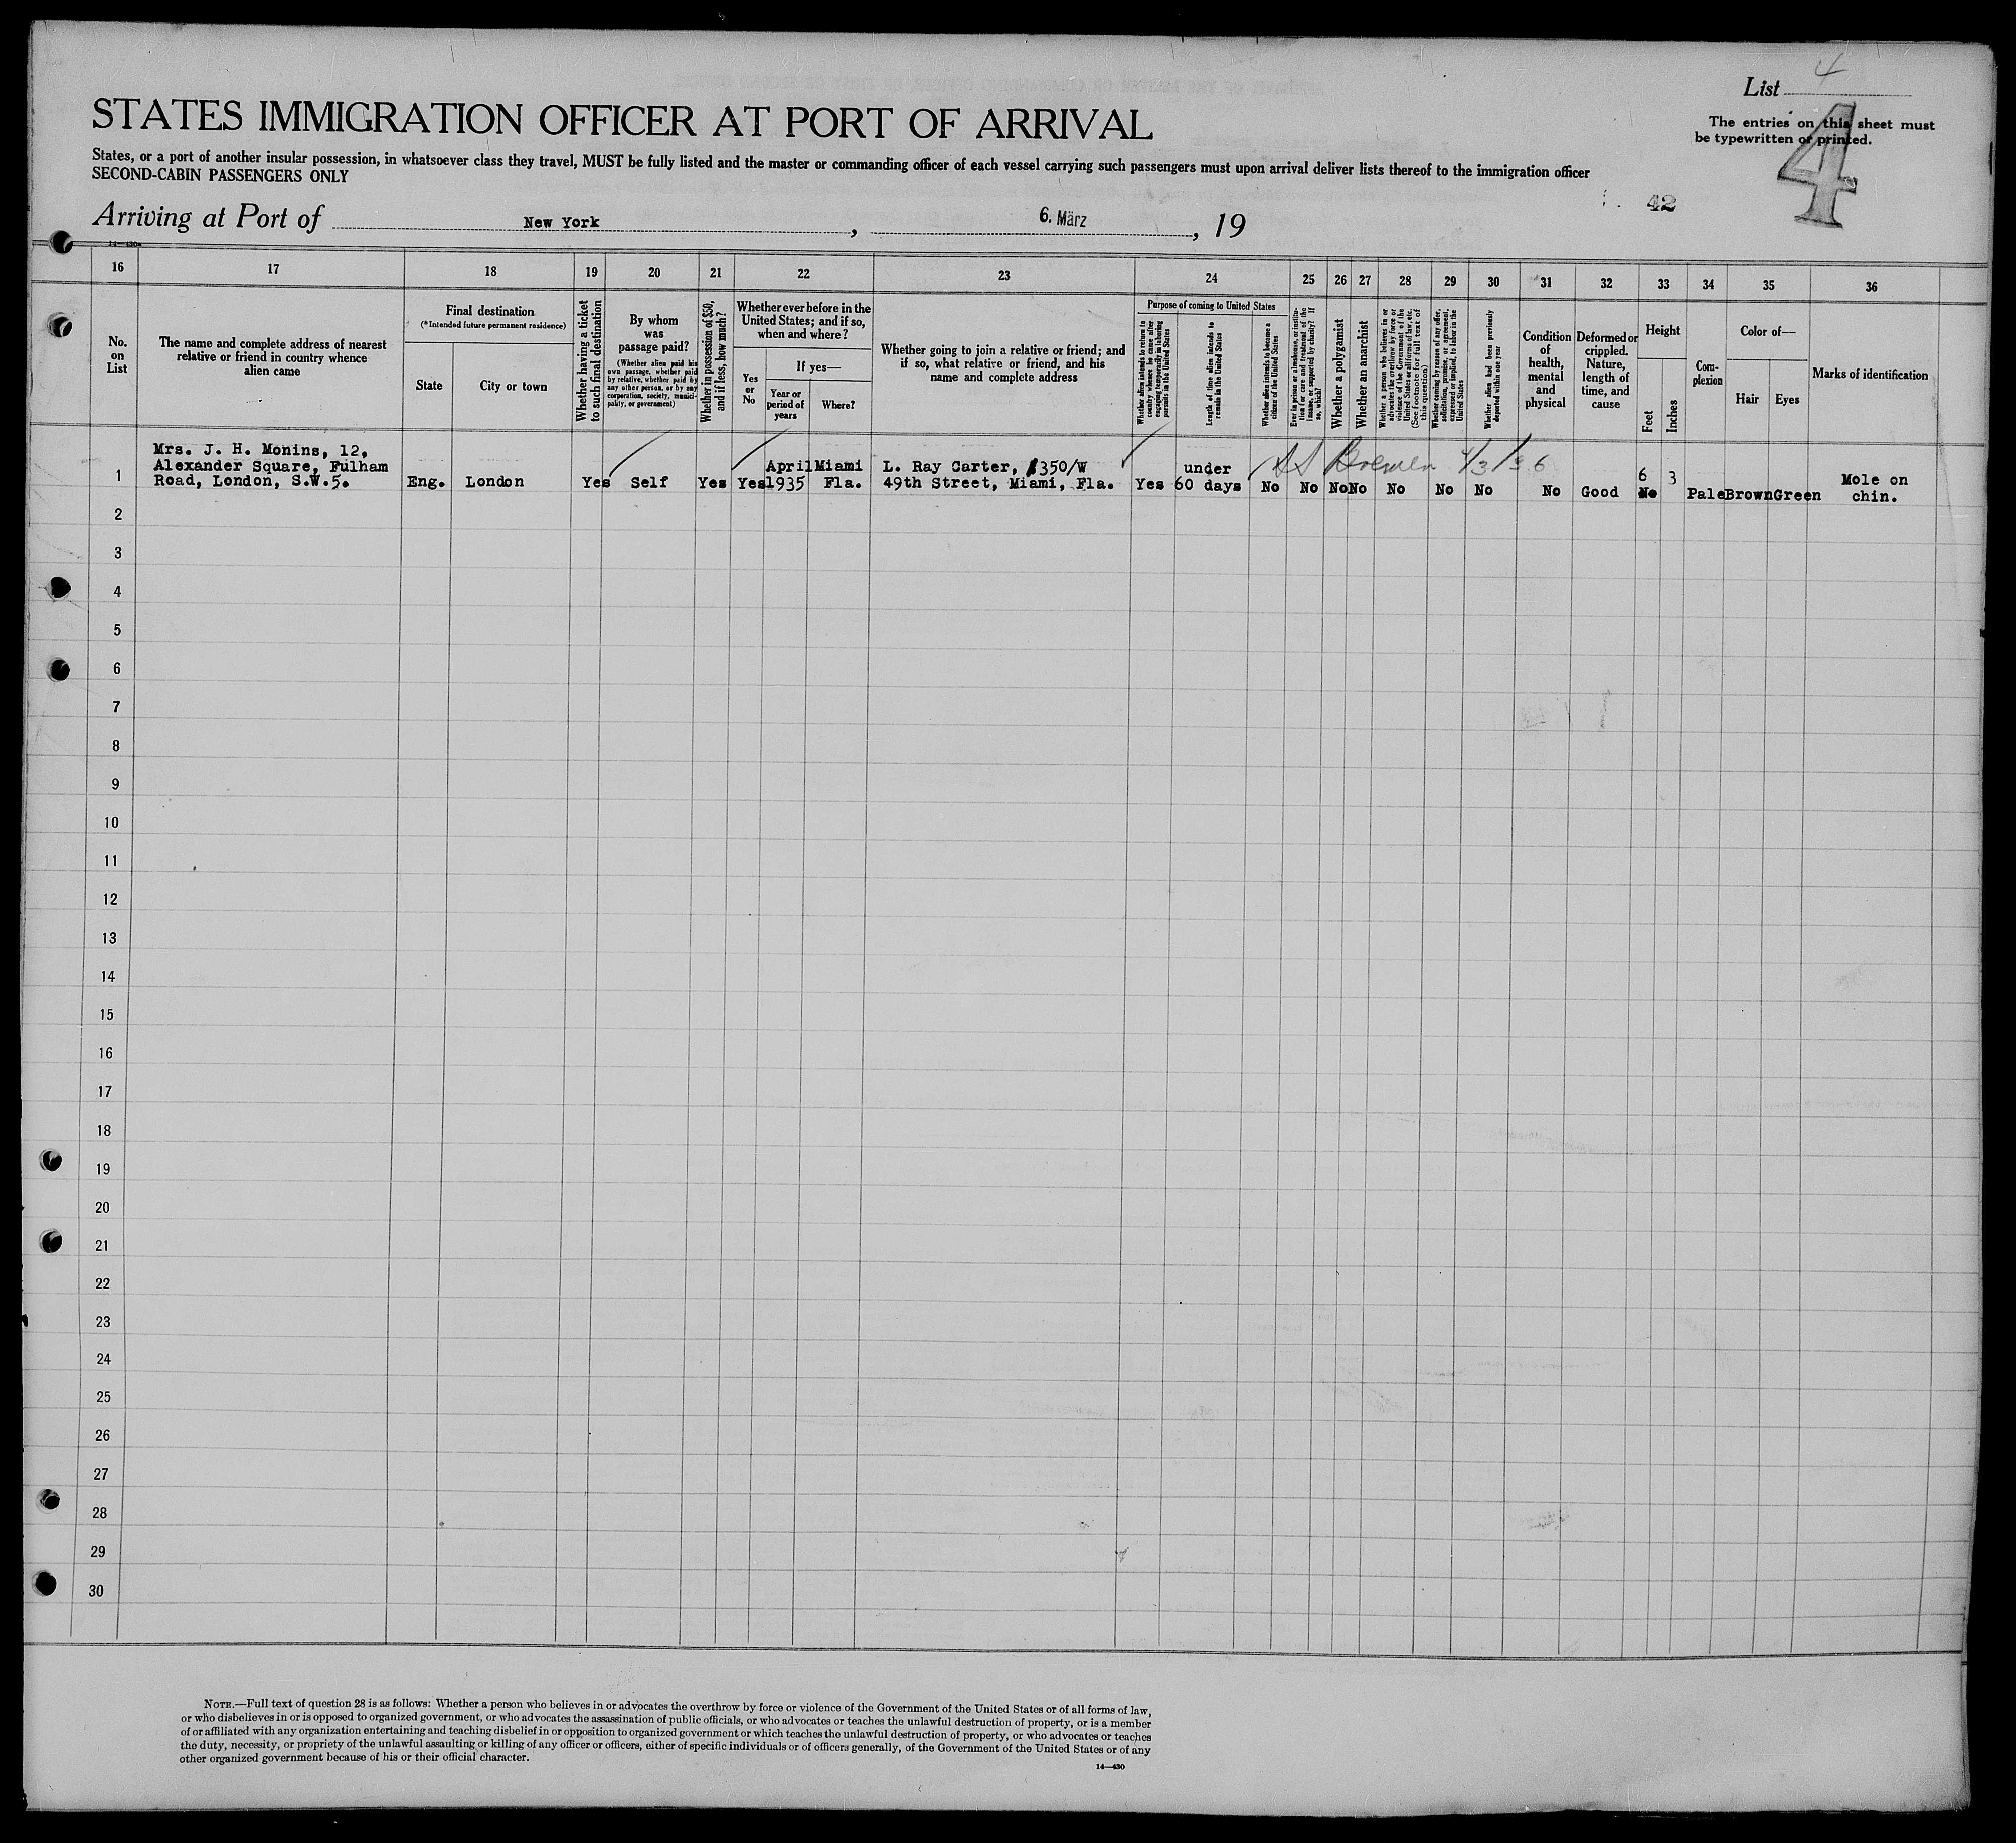 List 4
STATES IMMIGRATION OFFICER AT PORT OF ARRIVAL
The entries on this sheet must
be typewritten or printed.
4
States, or a port of another insular possession, in whatsoever class they travel, MUST be fully listed and the master or commanding officer of each vessel carrying such passengers must upon arrival deliver lists thereof to the immigration officer
SECOND-CABIN PASSENGERS ONLY
42
Arriving at Port of New York, 6. März, 19
14—430
16 17 18 19 20 21 22 23 24 25 26 27 28 29 30 31 32 33 34 35 36
No.
on
List
The name and complete address of nearest
relative or friend in country whence
alien came
Final destination
(*Intended future permanent residence)
State
City or town
Whether having a ticket
to such final destination
By whom
was
passage paid?
(Whether alien paid his
own passage, whether paid
by relative, whether paid by
any other person, or by any
corporation, society, munici-
pality, or government)
Whether in possession of $50,
and if less, how much?
Whether ever before in the
United States; and if so,
when and where?
Yes
or
No
If yes—
Year or
period of
years
Where?
Whether going to join a relative or friend; and
if so, what relative or friend, and his
name and complete address
Purpose of coming to United States
Whether alien intends to return to
country whence he came after
engaging temporarily in laboring
pursuits in the United States
Length of time alien intends to
remain in the United States
Whether alien intends to become a
citizen of the United States
Ever in prison or almshouse, or institu-
tion for care and treatment of the
insane, or supported by charity? If
so, which?
Whether a polygamist
Whether an anarchist
Whether a person who believes in or
advocates the overthrow by force or
violence of the Government of the
United States or all forms of law, etc.
(See footnote for full text of
this question)
Whether coming by reason of any offer,
solicitation, promise, or agreement,
expressed or implied, to labor in the
United States
Whether alien had been previously
deported within one year
Condition
of
health,
mental
and
physical
Deformed or
crippled.
Nature,
length of
time, and
cause
Height
Feet
Inches
Com-
plexion
Color of—
Hair
Eyes
Marks of identification
SS Bremen 4/3/36
Mrs. J. H. Monins, 12,
Alexander Square, Fulham April Miami L. Ray Carter, 350/W under
1 Road, London, S.W.5. Eng. London Yes Self Yes Yes 1935 Fla. 49th Street, Miami, Fla. Yes 60 days No No No No No No No No Good 6 3 No Pale Brown Green Mole on
chin.
2
3
4
5
6
7
8
9
10
11
12
13
14
15
16
17
18
19
20
21
22
23
24
25
26
27
28
29
30
NOTE.—Full text of question 28 is as follows: Whether a person who believes in or advocates the overthrow by force or violence of the Government of the United States or of all forms of law,
or who disbelieves in or is opposed to organized government, or who advocates the assassination of public officials, or who advocates or teaches the unlawful destruction of property, or is a member
of or affiliated with any organization entertaining and teaching disbelief in or opposition to organized government or which teaches the unlawful destruction of property, or who advocates or teaches
the duty, necessity, or propriety of the unlawful assaulting or killing of any officer or officers, either of specific individuals or of officers generally, of the Government of the United States or of any
other organized government because of his or their official character.
14—430